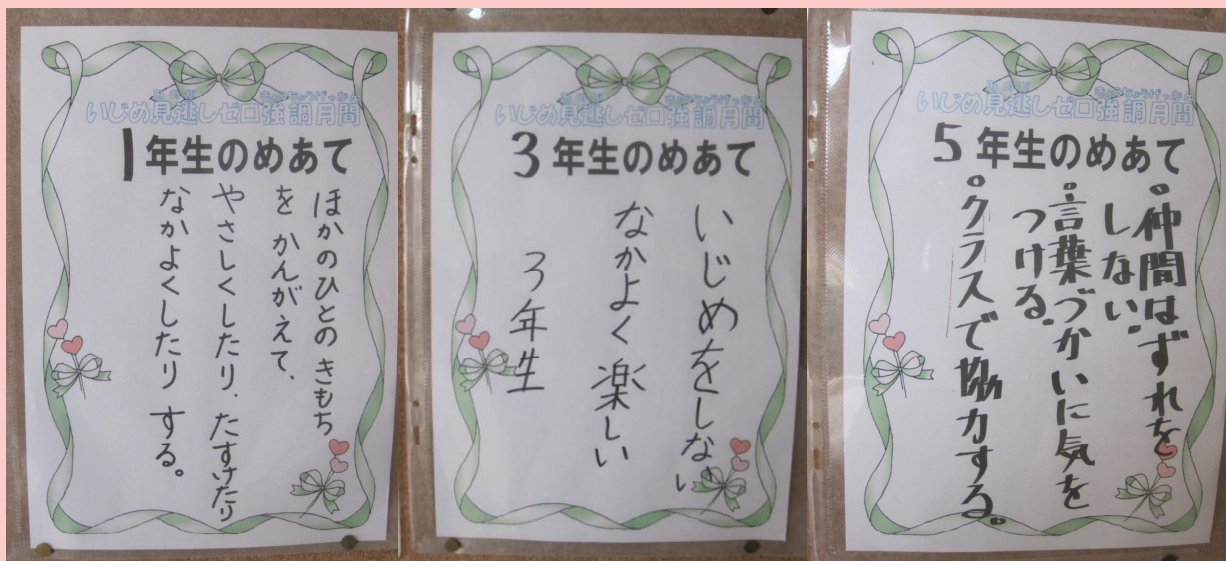 いじめ見逃しゼロ強調月間
1年生のめあて
ほかのひとの きもち
を かんがえて、
やさしくしたり、たすけたり
なかよくしたり する。
いじめ見逃しゼロ強調月間
3年生のめあて
いじめをしない
なかよく楽しい
3年生
いじめ見逃しゼロ強調月間
5年生のめあて
。仲間はずれを
しない。
。言葉づかいに気を
つける。
。クラスで協力する。